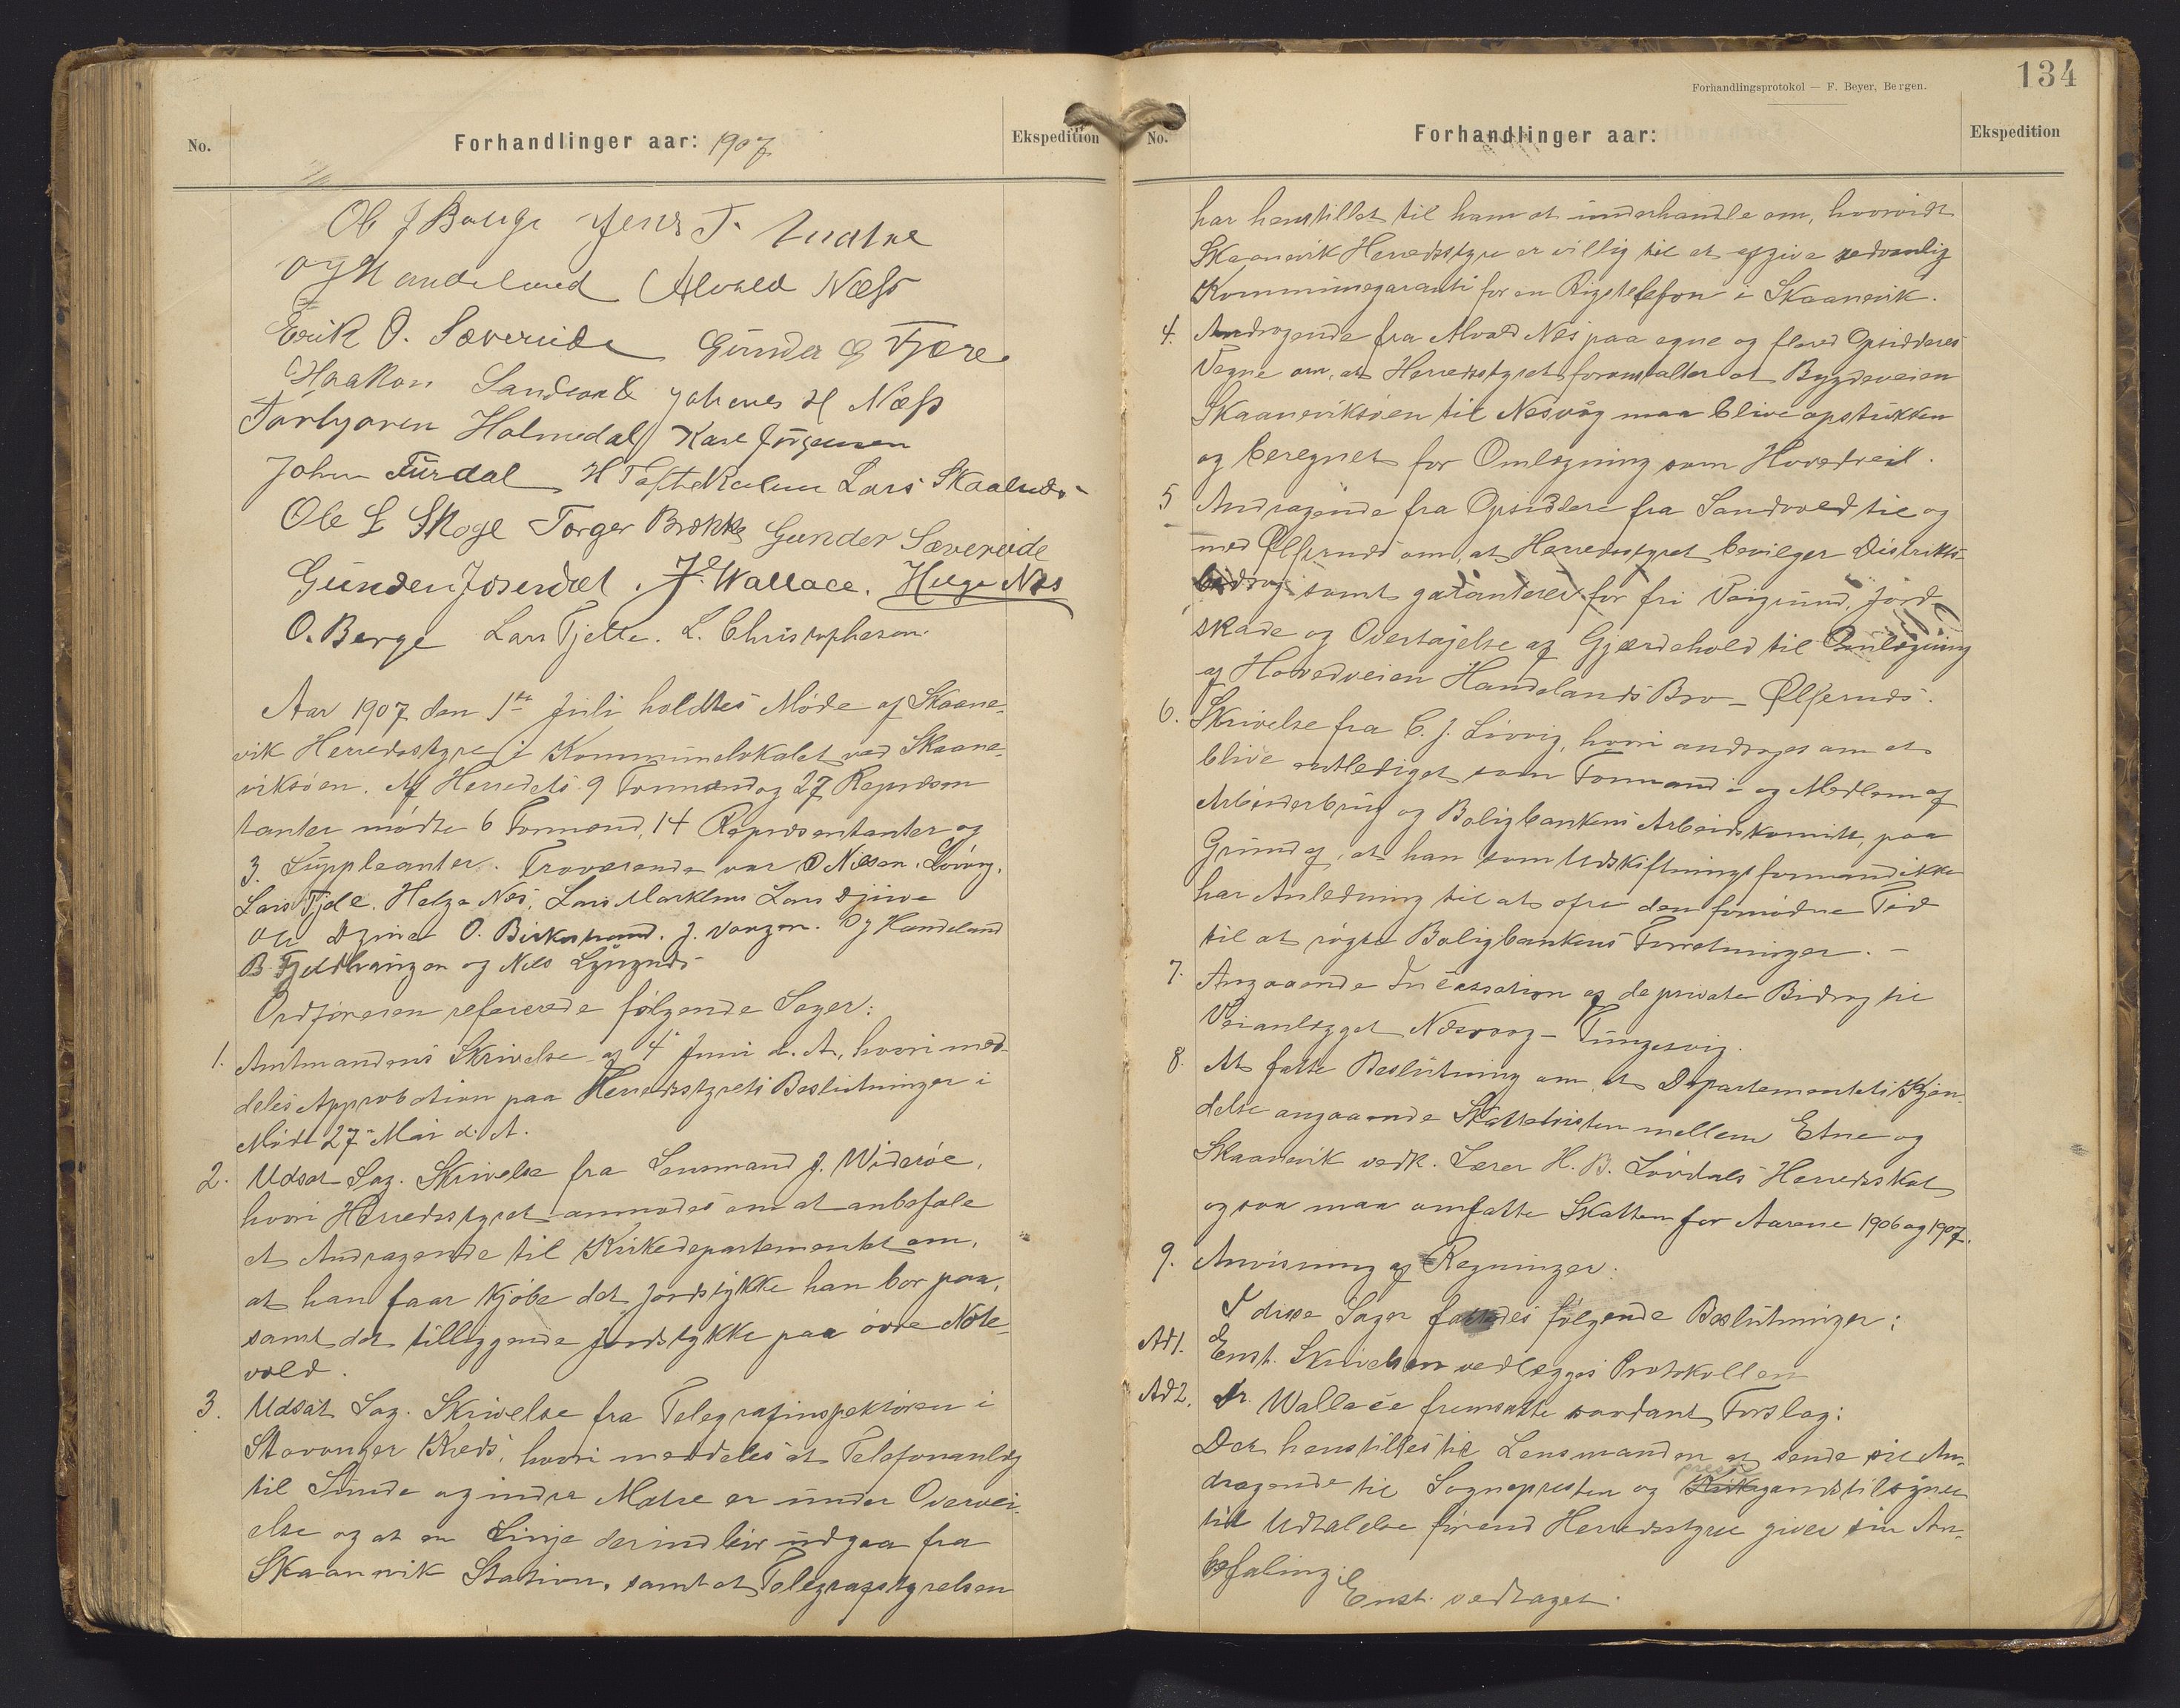 Forhandlingsprotokol — F. Beyer, Bergen.
134
No. Forhandlinger aar: 1907 Ekspedition
Ole J Bauge Jens T. Matre
O J Handeland Alvald Næss
Erik O. Sævereide Gunder G Fjære
Haakon Sandvold Johannes H Næss
Torbjørn Holmedal Karl Jörgensen
John Furdal H Lars Skaalnes
Ole L Skoge Torger Brekke Gunder Sævereide
Gunder Joserdal. J. Wallace. Helge Næs
O. Berge Lars Tjelle. L. Christophersen.
Aar 1907 den 1ste Juli holdtes Möde af Skaane-
vik Herredsstyre i Kommunelokalet ved Skaane-
viksöen. Af Herredets 9 Formænd og 27 Repræsen
tanter mödte 6 Formænd, 14 Repræsentanter og
3. Suppleanter. Fraværende var O Nilsen. Lövvig.
Lars Tjele. Helge Næs. Lars Markhus Lars Djuve
Ole Djuve O. Birkestrand. J. Vangen. O J Handeland
B. Fjeldhaugen og Nils Lyngnæs
Ordföreren refererede fölgende Sager:
1. Amtmandens Skrivelse af 4 Juni d. A., hvori med-
deles Approbation paa Herredsstyrets Beslutninger i
Möde 27 Mai d. A.
2. Udsat Sag. Skrivelse fra Lensmand J. Wideröe,
hvori Herredsstyret anmodes om at anbefale
et Andragende til Kirkedepartementet om,
at han faar kjöbe det Jordstykke han bor paa,
samt det tilliggende Jordstykke paa övre Note-
vold.
3. Udsat Sag. Skrivelse fra Telegrafinspektören i
Stavanger Kreds, hvori meddeles at Telefonanlæg
til Sunde og indre Matre er under Overvei-
else og at en Linje derind bör udgaa fra
Skaanevik Station, samt at Telegrafstyrelsen
No. Forhandlinger aar: Ekspedition
har henstillet til ham at underhandle om, hvorvidt
Skaanevik Herredsstyre er villig til at afgive sedvanlig
Kommunegaranti for en Rigstelefon i Skaanevik.
4. Andragende fra Alvald Næs paa egne og flered Opsidderes
Vegne om, at Herredsstyret foranstalter at Bygdeveien
Skaaneviksöen til Nesvåg maa blive opstukken
og beregnet for Omlægning som Hovedvei.
5 Andragende fra Opsiddere fra Sandvold til og
med Ølfernæs om, at Herredsstyret bevilger Distrikts-
bidrag samt garanterer for fri Veigrund, Jord-
skade og Overtagelse af Gjærdehold til Omlægning
af Hovedveien Handelands Bro - Ølfernæs.
6. Skrivelse fra C. J. Lövvig, hvori andrages om at
blive entlediget som Formand i og Medlem af
Arbeiderbrug og Boligbankens Arbeidskomite, paa
Grund af, at han som Udskiftningsformand ikke
har Anledning til at ofre den fornödne Tid
til at rögte Boligbankens Forretninger. —
7. Angaaende Incassation af de private Bidrag til
Veianlægget Næsvaag - Tungesvig.
8. At fatte Beslutning om, at Departementets Kjen-
delse angaaende Skattetvisten mellem Etne og
Skaanevik vedk. Lærer H. B. Lövdals Herredsskat
ogsaa maa omfatte Skatten for Aarene 1906 og 1907.
9. Anvisning af Regninger.
I disse Sager fattedes fölgende Beslutninger:
Ad 1. Enst. Skrivelsen vedlægges Protokollen
Ad 2. Hr. Wallace fremsatte saadant Forslag:
Det henstilles til Lensmanden at sende sit An-
dragende til Sognepresten og prest
gaardstilsynet
til Udtalelse förend Herredsstyre giver sin An-
befaling.
Enst. vedtaget.